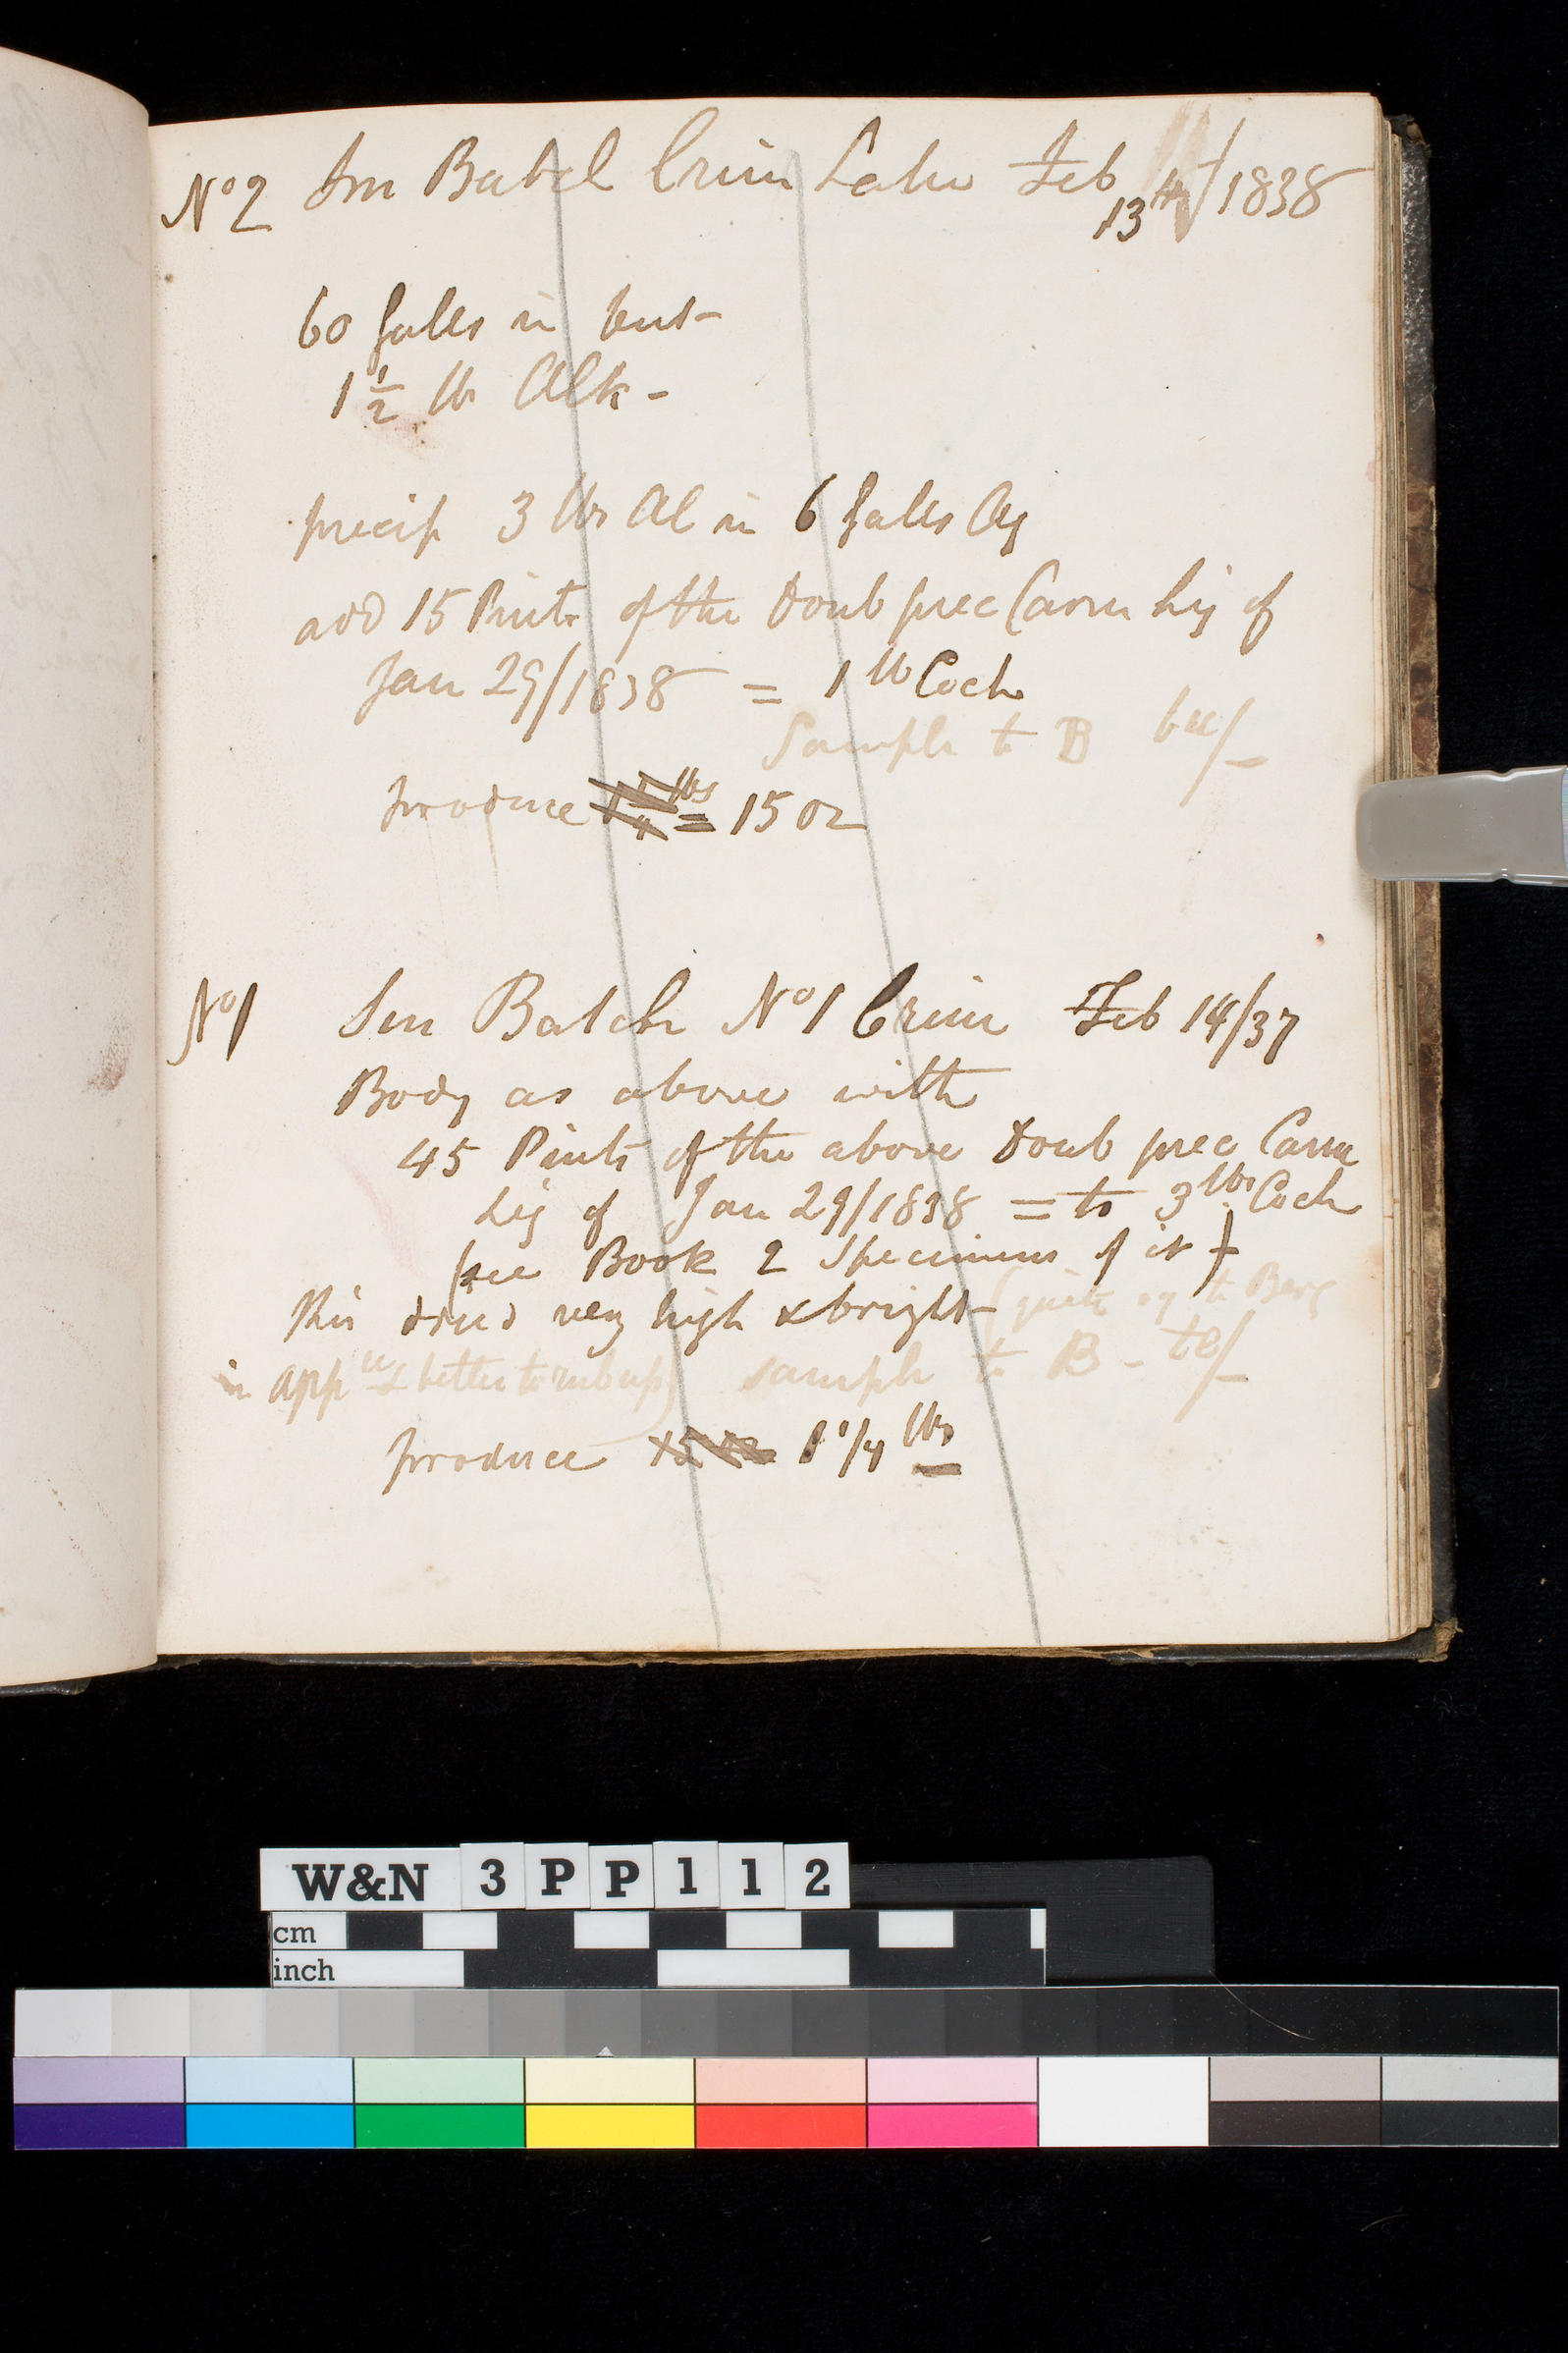 No 2 Sm Batch Crim Lake Feb 13th/1838
60 galls in but-
1 1/2 lb Alk-
precip 3 lbs Al in 6 galls Aq
add 15 Pints of the Doub prec Carm Liq of
Jan 29/1838 = 1 lb Coch
Sample to B
produce 1 1/4 lbs = 15 oz
No 1 Sm Batch No 1 Crim Feb 14/37
Body as above with
45 Pints of the above Doub prec Carm
Liq of Jan 29/1838 = to 3 lbs Coch
(see Book 2 Specimens of it)
This dried very high & bright (quite eq to Berg
in appce & better to rub up) sample to B -
produce 15 oz 1 1/4 lbs
W&N 3PP112
cm
inch